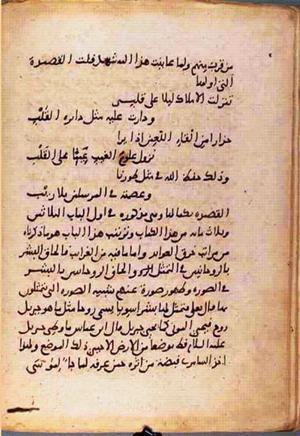 من قربت منهم ولما عاينت هذا المشهد قلت القصيدة
التي اولها
تنزلت الاملاك ليلا على قلبي
ودارت عليه مثل دايره القلب
حذارا من القاء اللعين اذا يرا
نزول علوم الغيب عينا على القلب
وذلك حفظ الله في مثل طورنا
وعصمة في المرسلين بلا ريب
القصيده بكمالها وهي مذكوره في اول الباب الثالث
وثلاث مايه من هذا الكتاب وترتيب هذا الباب هو ما ذكرناه
من مراتب خرق العوايد واما ما فيه من الغرايب فالحاق البشر
بالروحانيين في التمثل والحاق الروحاني بالبشر
في الصوره وظهور صورة عنهم شبيهه الصوره التي يتمثلون
بها قال تعالى فتمثل لها بشرا سويا يسمى روحا مثل ما هو جبريل
روح فيحيى الموتى كما يحيى جبريل قال ابن عباس ما وطئ جبريل
عليه السلام قط موضعا من الارض الا حيى ذلك الموضع ولهذا
اخذ السامري قبضة من اثره حين عرفه لما جا الى موسى